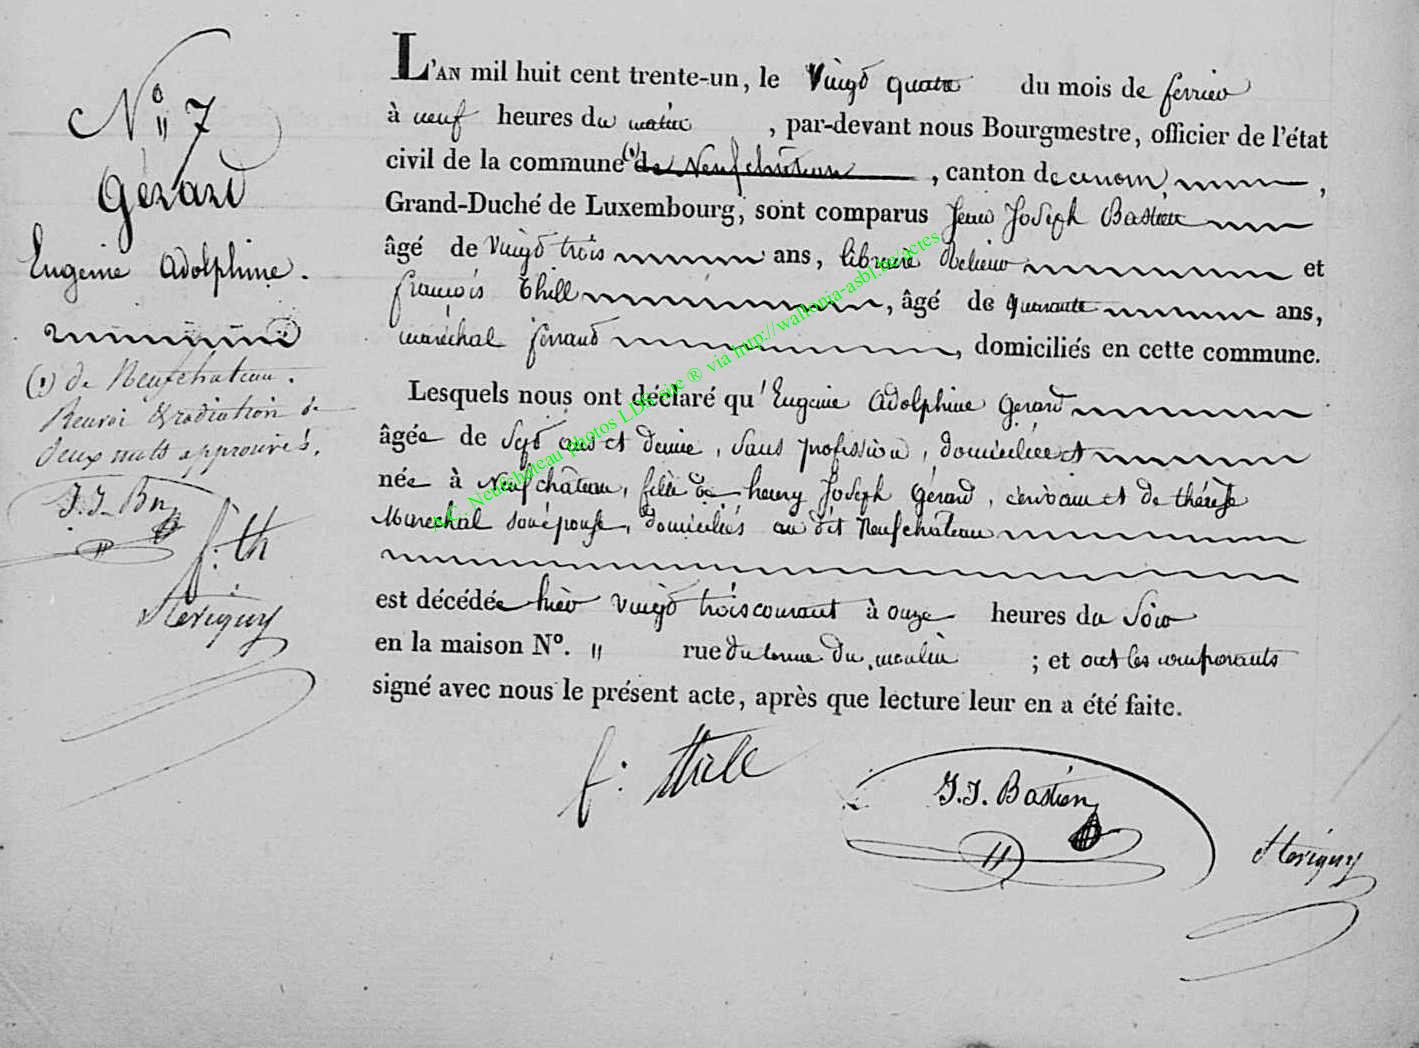 N.° 7
Gérard
Eugenie Adolphine.
(1) de Neufchateau.
Renvoi & radiation de
deux mots approuvés.
J.J. Bn
f: th
L'AN mil huit cent trente-un, le Vingt quatre du mois de fevrier
à neuf heures du matin, par-devant nous Bourgmestre, officier de l'état
civil de la commune (1) de Neufchateau, canton de cenom,
Grand-Duché de Luxembourg, sont comparus Jean Joseph Bastien
âgé de Vingt trois ans, libraire Relieur et
françois Thill, âgé de quarante ans,
maréchal ferrand, domiciliés en cette commune.
Lesquels nous ont déclaré qu'Eugenie Adolphine Gerard
âgée de Sept ans et demie, sans profession, domiciliée et
née à Neufchâteau, fille de henry Joseph Gérard, écrivain et de thérese
Marechal son épouse, domiciliés au dit Neufchâteau
est décédée hier vingt trois courant à onze heures du Soir
en la maison N°. " rue du terme du moulin ; et ont les comparants
signé avec nous le présent acte, après que lecture leur en a été faite.
f: thill
J.J. Bastien
A.C. Neufchateau photos LDS site ® via http://wallonia-asbl.be/actes